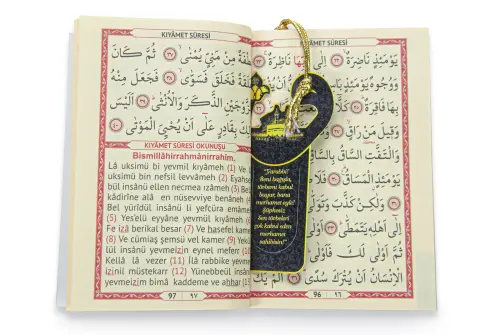 KIYÂMET SÛRESİ
يَوْمَئِذٍ نَاضِرَةٌ ﴿٢٢﴾ اِلٰى رَبِّهَا نَاظِرَةٌ ﴿٢٣﴾
وَوُجُوهٌ يَوْمَئِذٍ
بِهَا فَاقِرَةٌ ﴿٢٥﴾ كَلَّا
وَقِيلَ مَنْ رَاقٍ ﴿٢٧﴾
وَالْتَفَّتِ السَّاقُ بِالسَّاقِ
يَوْمَئِذٍ الْمَسَاقُ ﴿٣٠﴾
اِلٰى اَهْلِهِ يَتَمَطّٰى ﴿٣٣﴾
ثُمَّ اَوْلٰى لَكَ فَاَوْلٰى
الْاِنْسَانُ اَنْ يُتْرَكَ سُدًى ﴿٣٦﴾ اَلَمْ يَكُ
96 ٩٦
"Yarabbi!
Beni bağışla,
tövbemi kabul
buyur, bana
merhamet eyle!
Şüphesiz
Sen tövbeleri
çok kabul eden
merhamet
sahibisin!"
KIYÂMET SÛRESİ
نُطْفَةً مِنْ مَنِيٍّ يُمْنٰى ﴿٣٧﴾ ثُمَّ كَانَ
عَلَقَةً فَخَلَقَ فَسَوّٰى ﴿٣٨﴾ فَجَعَلَ مِنْهُ
الزَّوْجَيْنِ الذَّكَرَ وَالْاُنْثٰى ﴿٣٩﴾ اَلَيْسَ
ذٰلِكَ بِقَادِرٍ عَلٰى اَنْ يُحْيِيَ الْمَوْتٰى ﴿٤٠﴾
KIYÂMET SÛRESİ OKUNUŞU
Bismillâhirrahmânirrahîm.
Lâ uksimü bi yevmil kıyâmeh (1) Ve lâ
uksimü bin nefsil levvâmeh (2) Eyahse
bül insânü ellen necmea ızâmeh (3) Belâ
kâdirîne alâ en nüsevviye benâneh (4)
Bel yürîdül insânü li yefcüra emâmeh
(5) Yes'elü eyyâne yevmül kıyâmeh (6)
Fe izâ berikal besar (7) Ve hasefel kamer
(8) Ve cümiaş şemsü vel kamer (9) Yekû
lül insânü yevmeizin eynel mefer (10)
Kellâ lâ vezer (11) İlâ rabbike yevme
izinil müstekarr (12) Yünebbeül insânü
yevmeizim bimâ kaddeme ve ahhar (13)
97 ٩٧